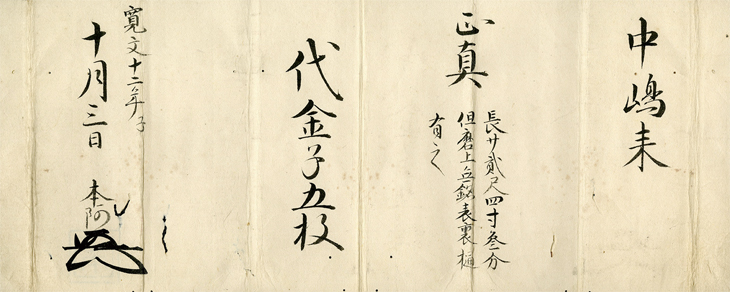 中嶋来
正真
長サ貳尺四寸叁分
但磨上無銘表裏樋
有之
代金子五枚
寛文十二年子
十月三日
本阿